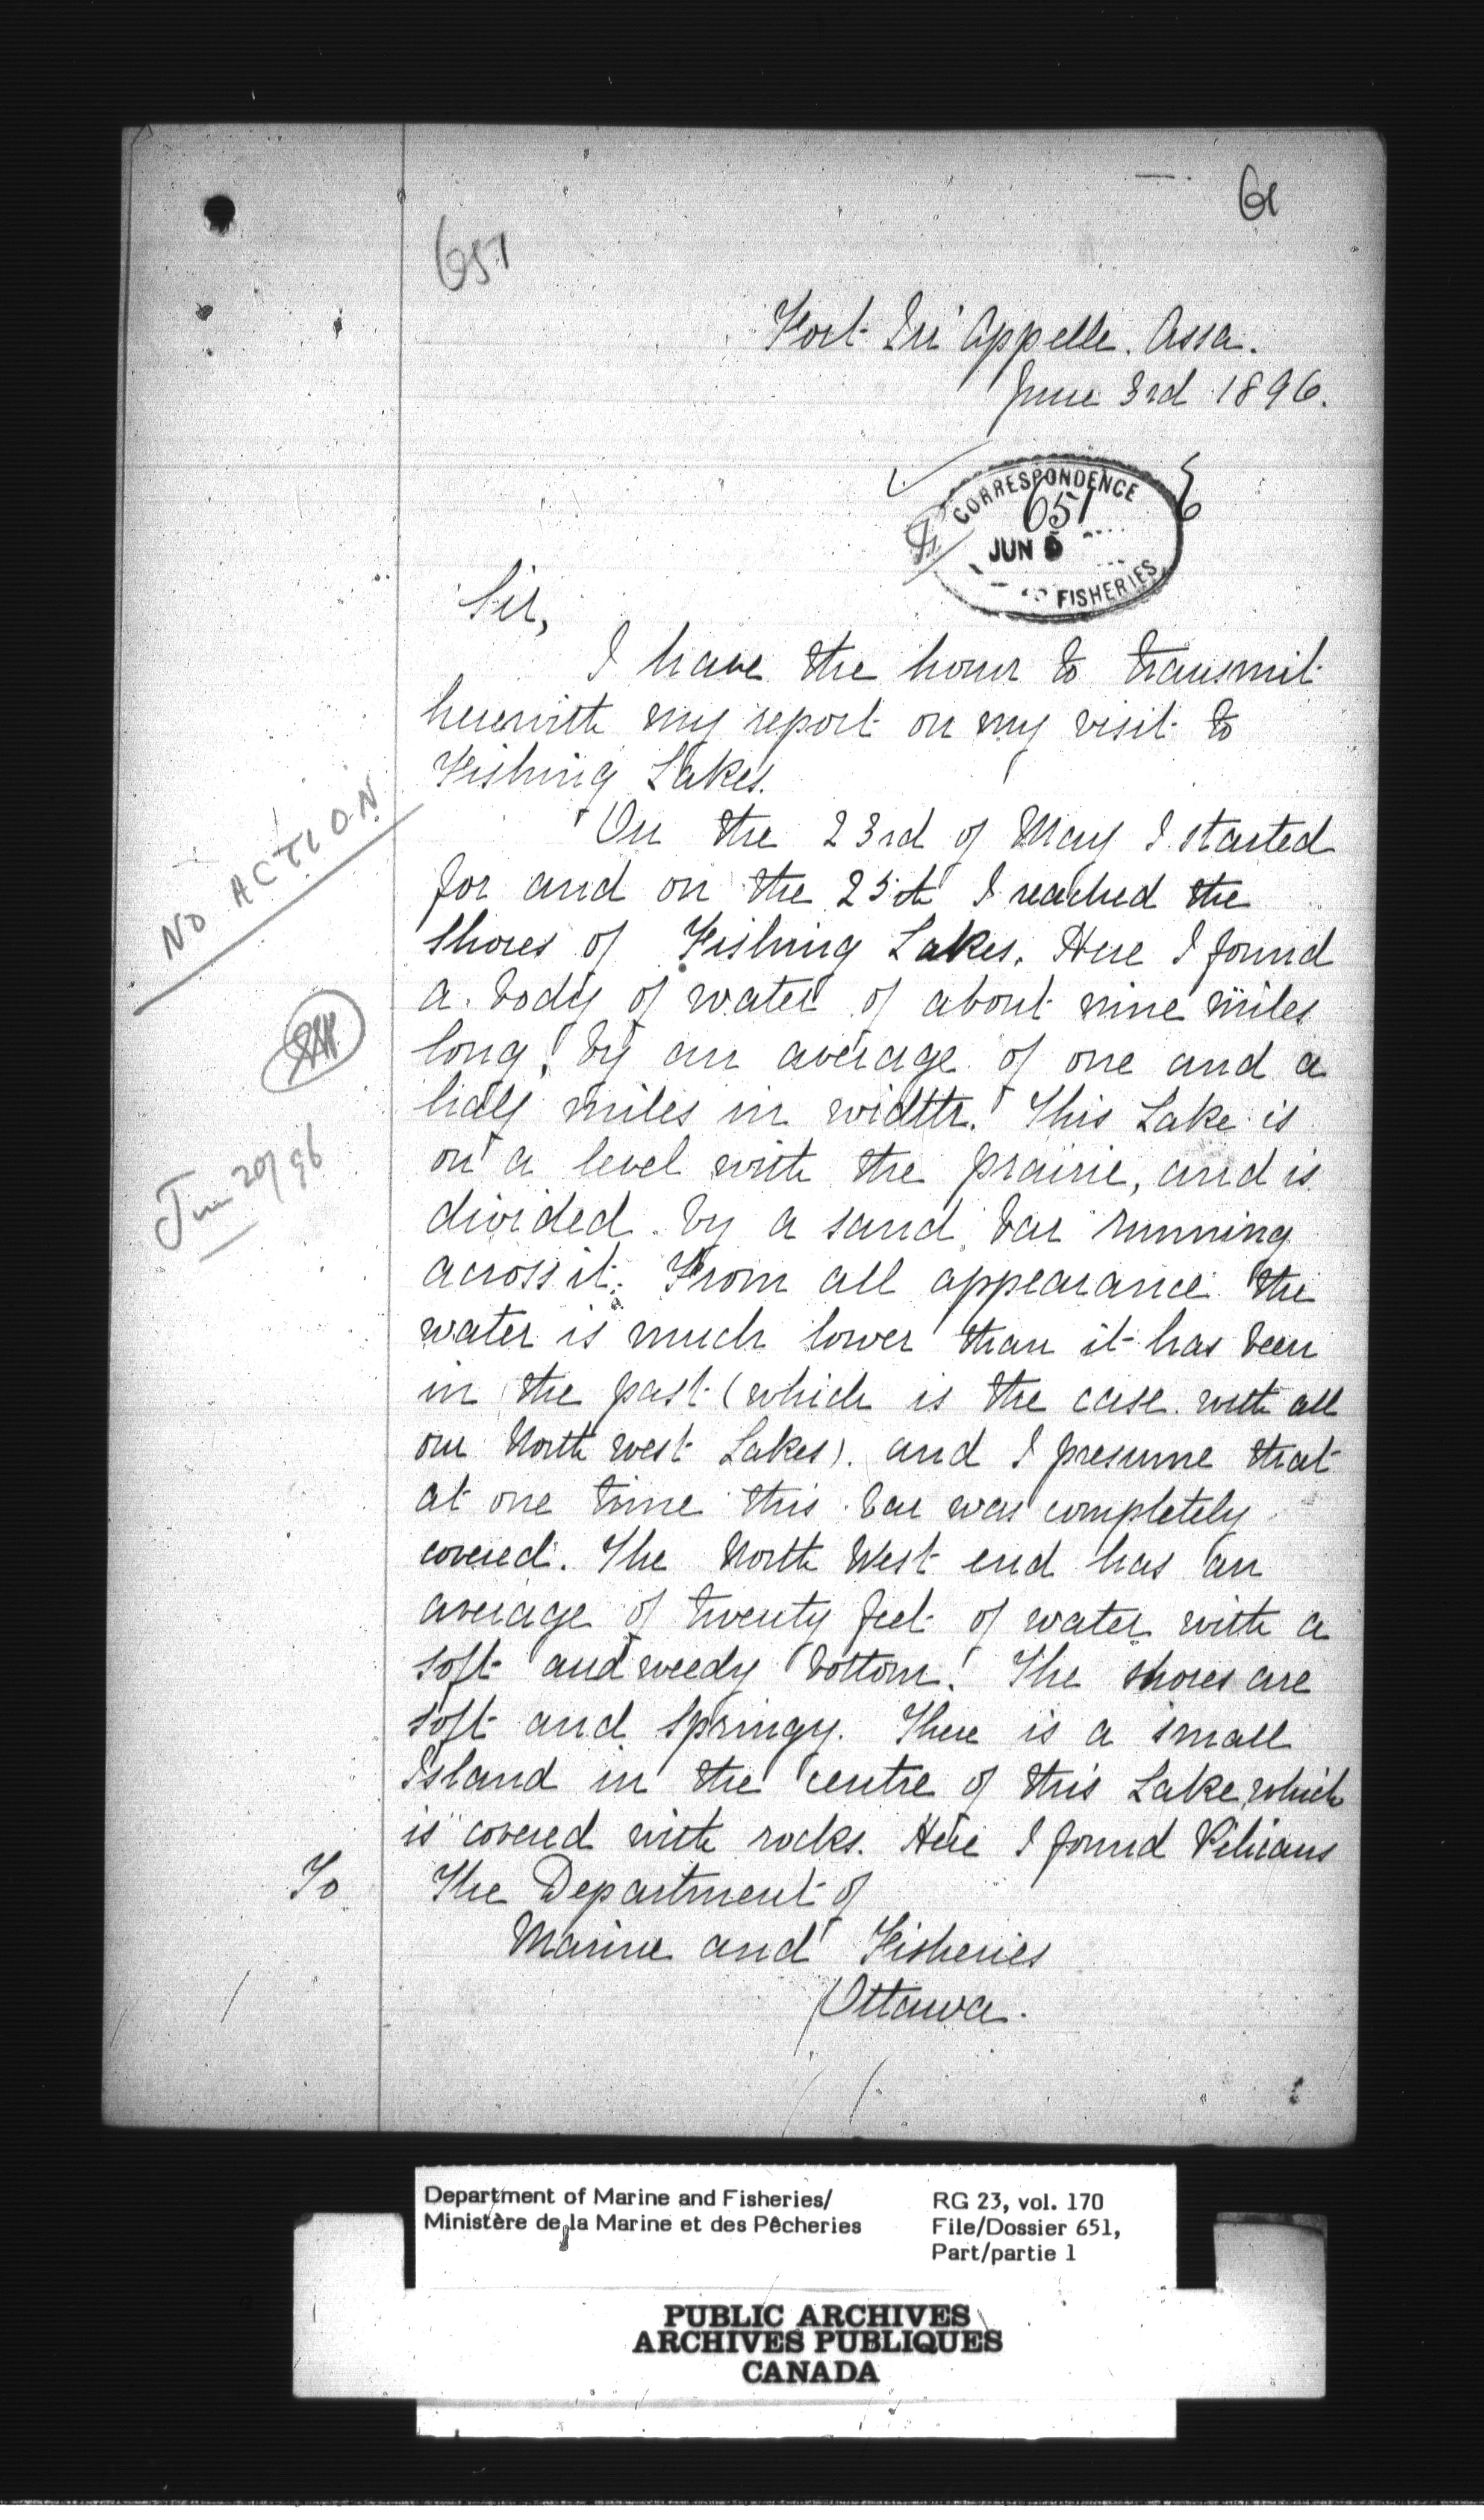 61
651
Fort Qu'Appelle. Assa.
June 3rd 1896.
CORRESPONDENCE
651
JUN 5
FISHERIES
Sir,
I have the honor to transmit
herewith my report on my visit to
Fishing Lakes.
On the 23rd of May I started
for and on the 25th I reached the
shores of Fishing Lakes. Here I found
a body of water of about nine miles
long, by an average of one and a
half miles in width. This Lake is
on a level with the prairie, and is
divided by a sand bar running
across it. From all appearance the
water is much lower than it has been
in the past (which is the case with all
our North West Lakes). and I presume that
at one time this bar was completely
covered. The North West end has an
average of twenty feet of water with a
soft and weedy bottom. The shores are
soft and springy. There is a small
Island in the centre of this Lake, which
is covered with rocks. Here I found Pelicans
To The Department of
Marine and Fisheries
Ottawa.
NO ACTION
Jun 20/96
Department of Marine and Fisheries/
Ministère de la Marine et des Pêcheries
RG 23, vol. 170
File/Dossier 651,
Part/partie 1
PUBLIC ARCHIVES
ARCHIVES PUBLIQUES
CANADA